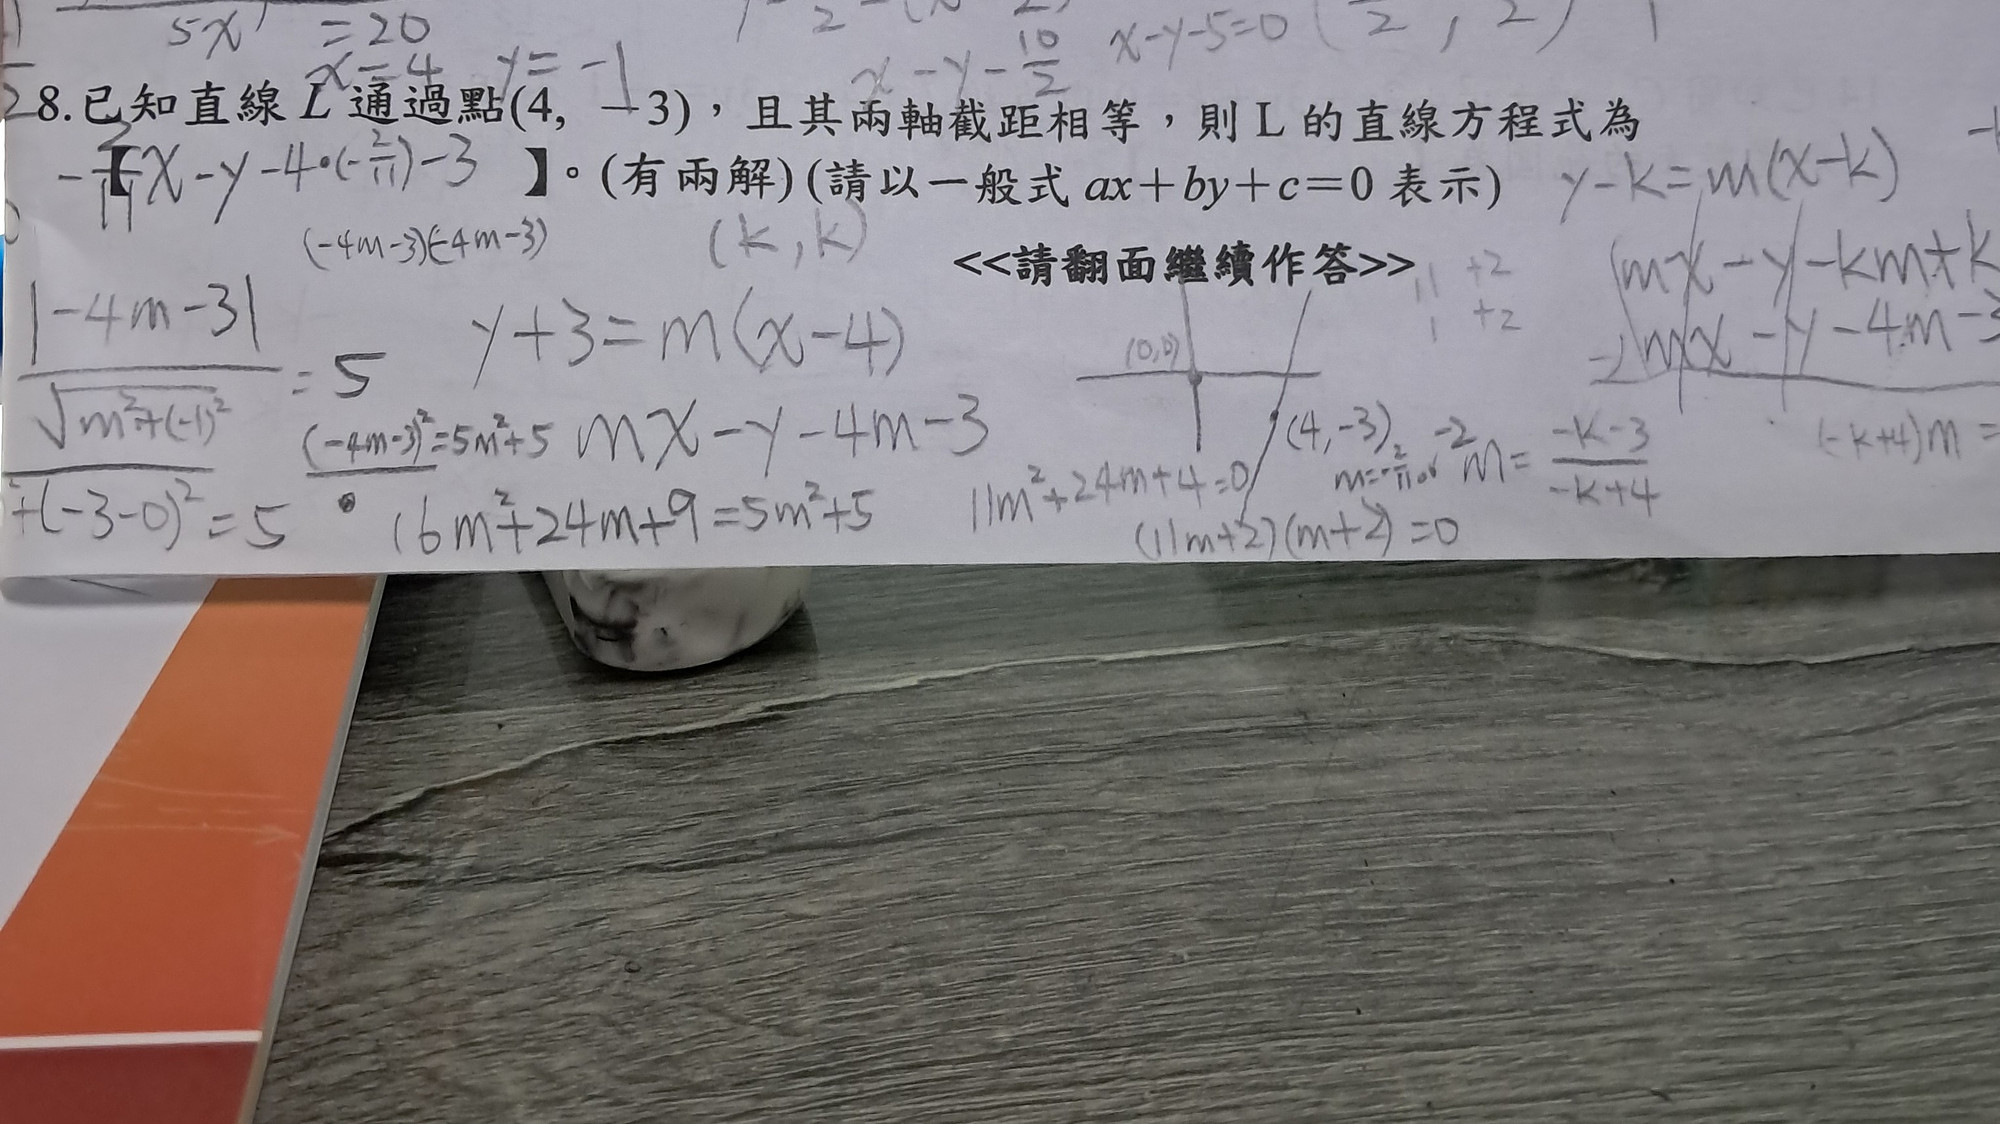 5x = 20
x = 4 y = -1
x-y-10/2 x-y-5=0
8.已知直線 L 通過點(4, -3),且其兩軸截距相等,則 L 的直線方程式為
【-2/11x-y-4·(-2/11)-3 】。(有兩解)(請以一般式 ax+by+c=0 表示)
y-k=m(x-k)
(-4m-3)(-4m-3) (k,k)
<<請翻面繼續作答>>
11 +2
1 +2
mx-y-km+k
-) mx-y-4m-3
(-k+4)m=
|-4m-3|/√m²+(-1)² = 5
y+3=m(x-4)
(0,0)
(-4m-3)²=5m²+5
mx-y-4m-3
(4,-3)
m=-2/11 or -2
m= -k-3/-k+4
+(-3-0)² = 5
16m²+24m+9=5m²+5
11m²+24m+4=0
(11m+2)(m+2)=0